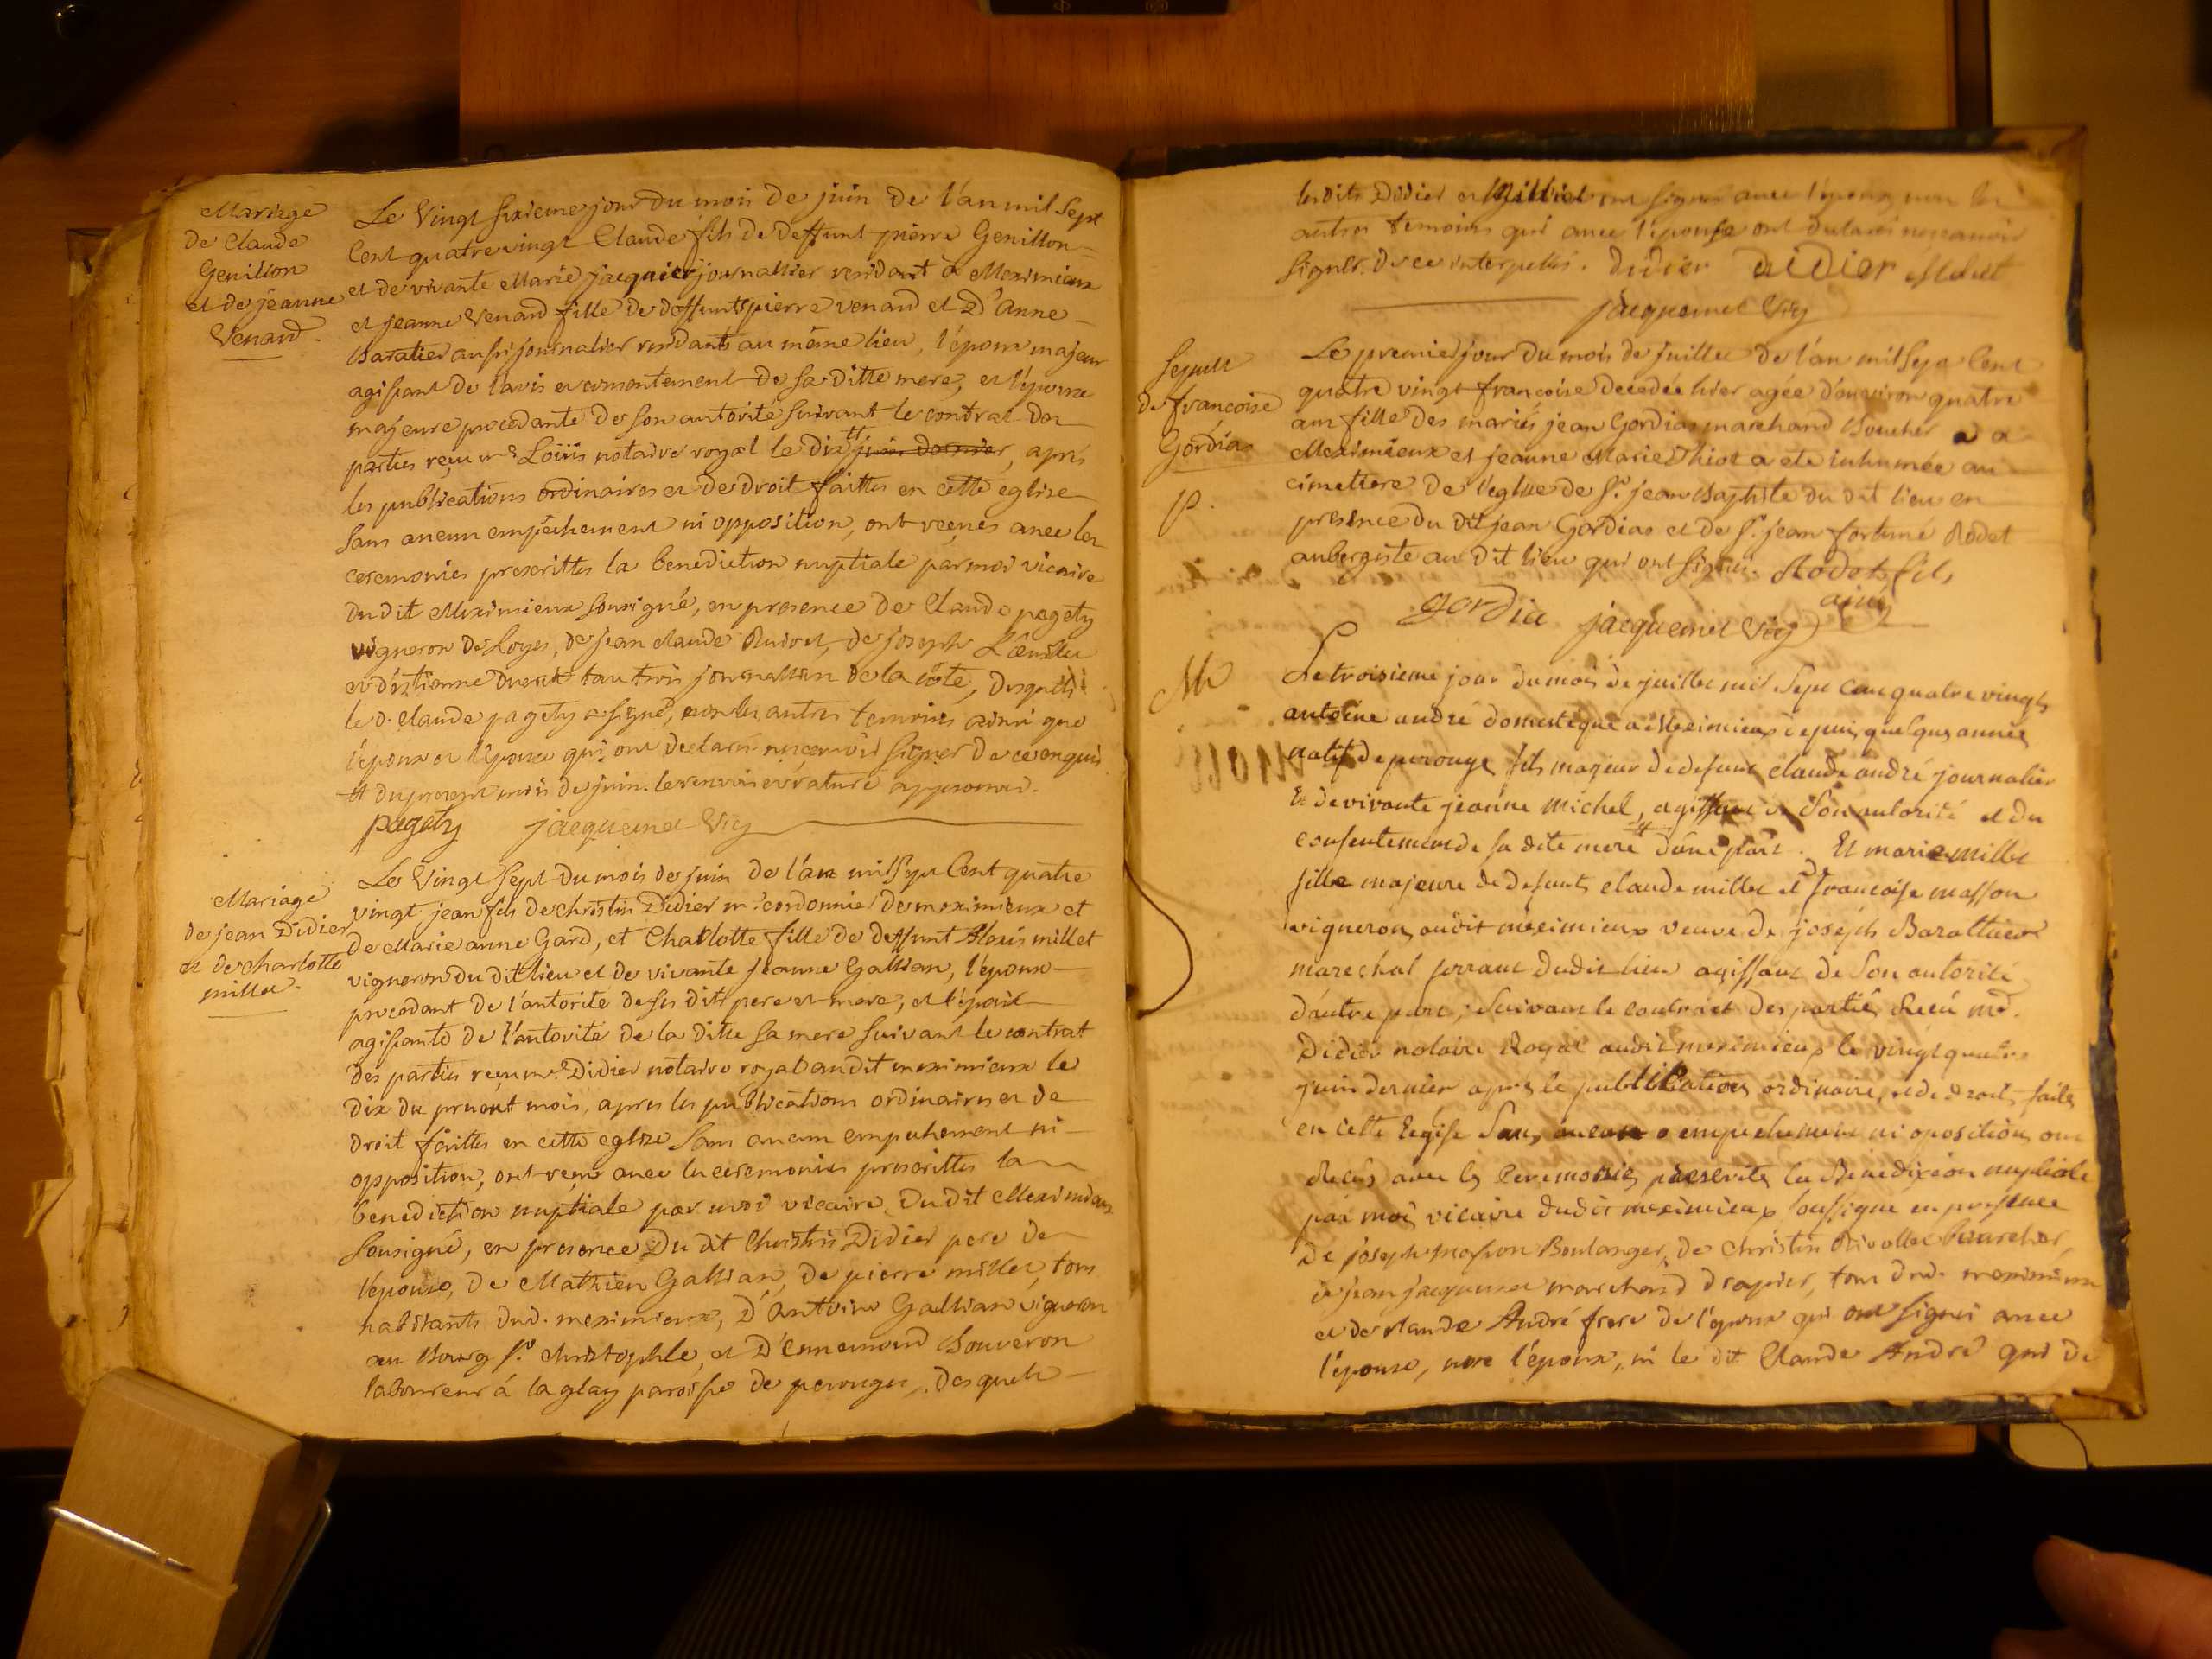 Mariage
de Claude
Genillon
et de jeanne
Venard.
Le Vingt sixieme jour du mois de juin de l'an mil sept
Cent quatre vingt Claude fils de deffunt pierre Genillon
et de vivante Marie jacquier journallier residant à Meximieux
et jeanne Venard fille de deffunts pierre venard et D'anne
Baratier aussi journalier residants au même lieu, l'époux majeur
agissant de l'avis et consentement de sa ditte mere, et l'épouse
majeure procedante de son autorité suivant le contrat des
parties reçu me Loüis notaire royal le dix juin dernier, après
les publications ordinaires et de droit faittes en cette eglise
sans aucun empechement ni opposition, ont reçues avec les
ceremonies prescrittes la benediction nuptiale par moi vicaire
du dit Meximieux sousigné, en presence de Claude pagety
vigneron de Loyes, de jean claude de joseph
et d'Etienne tous trois journalliers de la côte, desquels
le d. claude pagety a signé, non les autres temoins ainsi que
l'époux et l'épouse qui ont declaré ne scavoir signer de ce enquis
# du present mois de juin. le renvoi et rature approuvés.
pagety jacquemet Vic
Mariage
de jean Didier
et de charlotte
millet.
Le Vingt sept du mois de juin de l'an mil sept Cent quatre
vingt jean fils de christin Didier me cordonnier de meximieux et
de Marie anne Gard, et Charlotte fille de deffunt Alexis millet
vigneron du dit lieu et de vivante jeanne Gallian, l'époux
procedant de l'autorité de ses dits pere et mere, et l'épouse
agissante de l'autorité de la ditte sa mere suivant le contrat
des parties reçu me Didier notaire royal au dit meximieux le
dix du present mois, apres les publications ordinaires et de
droit faittes en cette eglize sans aucun empechement ni
opposition, ont reçu avec les ceremonies prescrittes la
benediction nuptiale par moi vicaire du dit Meximieux
sousigné, en presence du dit Christin Didier pere de
l'époux, de Mathieu Gallian, de pierre millet, tous
habitants dud. meximieux, D'antoine Gallian vigneron
au Bourg st christophle, et D'ennemond Bouveron
laboureur á la glay paroisse de perouges, desquels
lesdits Didier et ont signés avec l'époux, non les
autres temoins qui avec l'épouse ont declarés ne scavoir
signer de ce interpellés. didier didier Milliet
jacquemet Vic
Sepult
de françoise
Gordia
p.
Le premier jour du mois de juillet de l'an mil sept Cent
quatre vingt françoise decedée hier agée d'environ quatre
ans fille des mariés jean Gordias marchand Boucher a
Meximieux et jeanne Marie Thiot a eté inhumée au
cimettere de l'eglise de st jean Baptiste du dit lieu en
presence du dit jean Gordias et de sr jean fortuné Rodet
aubergiste au dit lieu qui ont signés. Rodet fils
ainé
gordia jacquemet Vic
M
Le troisieme jour du mois de juillet mil sept cent quatre vingts
antoine andré domestique a Meximieux depuis quelques années
natif de perouge fils majeur de defunt claude andré journalier
Et de vivante jeanne michel, agissant de son autorité et du
consentement de sa dite mere d'une part. Et marie millet
fille majeure de defunts claude millet et françoise masson
vigneron audit meximieux veuve de joseph Barattier
marechal ferrant dudit lieu agissant de son autorité
d'autre part, suivant le contract des parties Recu me.
Didier notaire Royal audit meximieux le vingt quatre
juin dernier apres les publications ordinaires et de droit faites
en cette Eglise sans aucun empechement ni oposition ont
Recûs avec les Ceremonies prescrites la Benediction nuptiale
par moi vicaire dudit meximieux soussigné en presence
de joseph masson Boulanger, de christin Rivollet,
de jean jacquemet marchand drapier, tous dud. meximieux
et de claude André frere de l'époux qui ont signés avec
l'épouse, non l'époux, ni le dit Claude André qui de